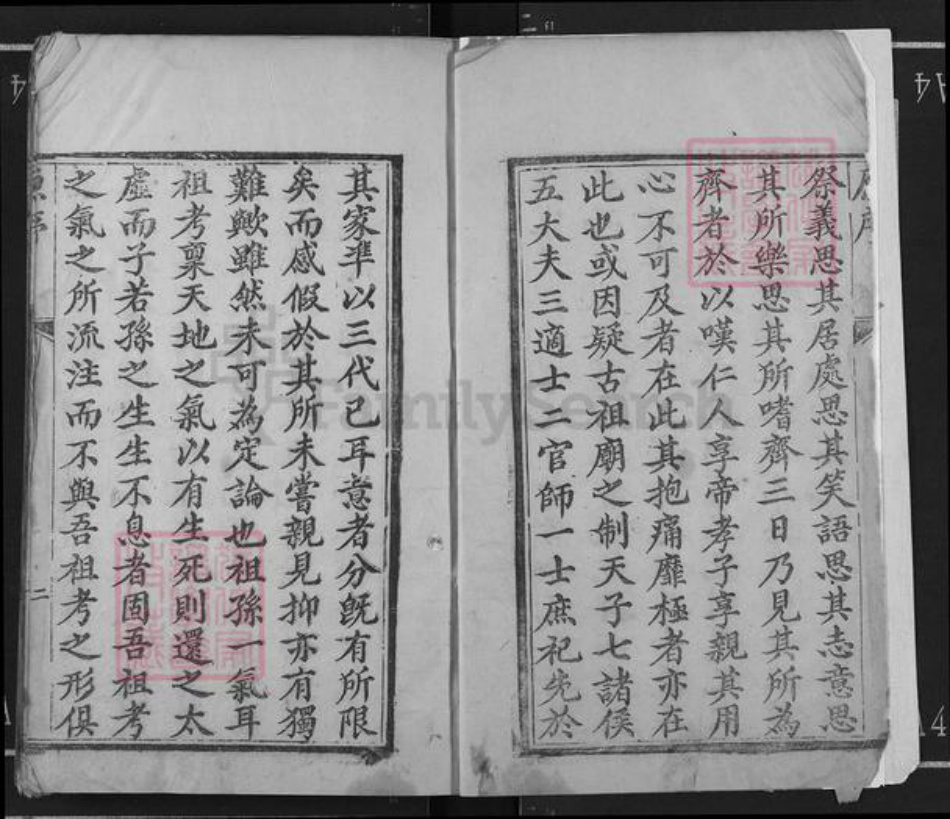 原序
祭義思其居處思其笑語思其志意思
其所樂思其所嗜齊三日乃見其所為
齊者於以嘆仁人享帝孝子享親其用
心不可及者在此其抱痛靡極者亦在
此也或因疑古祖廟之制天子七諸侯
五大夫三適士二官師一士庶祀先於
其家準以三代已耳意者分既有所限
矣而感假於其所未嘗親見抑亦有獨
難歟雖然未可為定論也祖孫一氣耳
祖考稟天地之氣以有生死則還之太
虛而子若孫之生生不息者固吾祖考
之氣之所流注而不與吾祖考之形俱
原序
二
FamilySearch